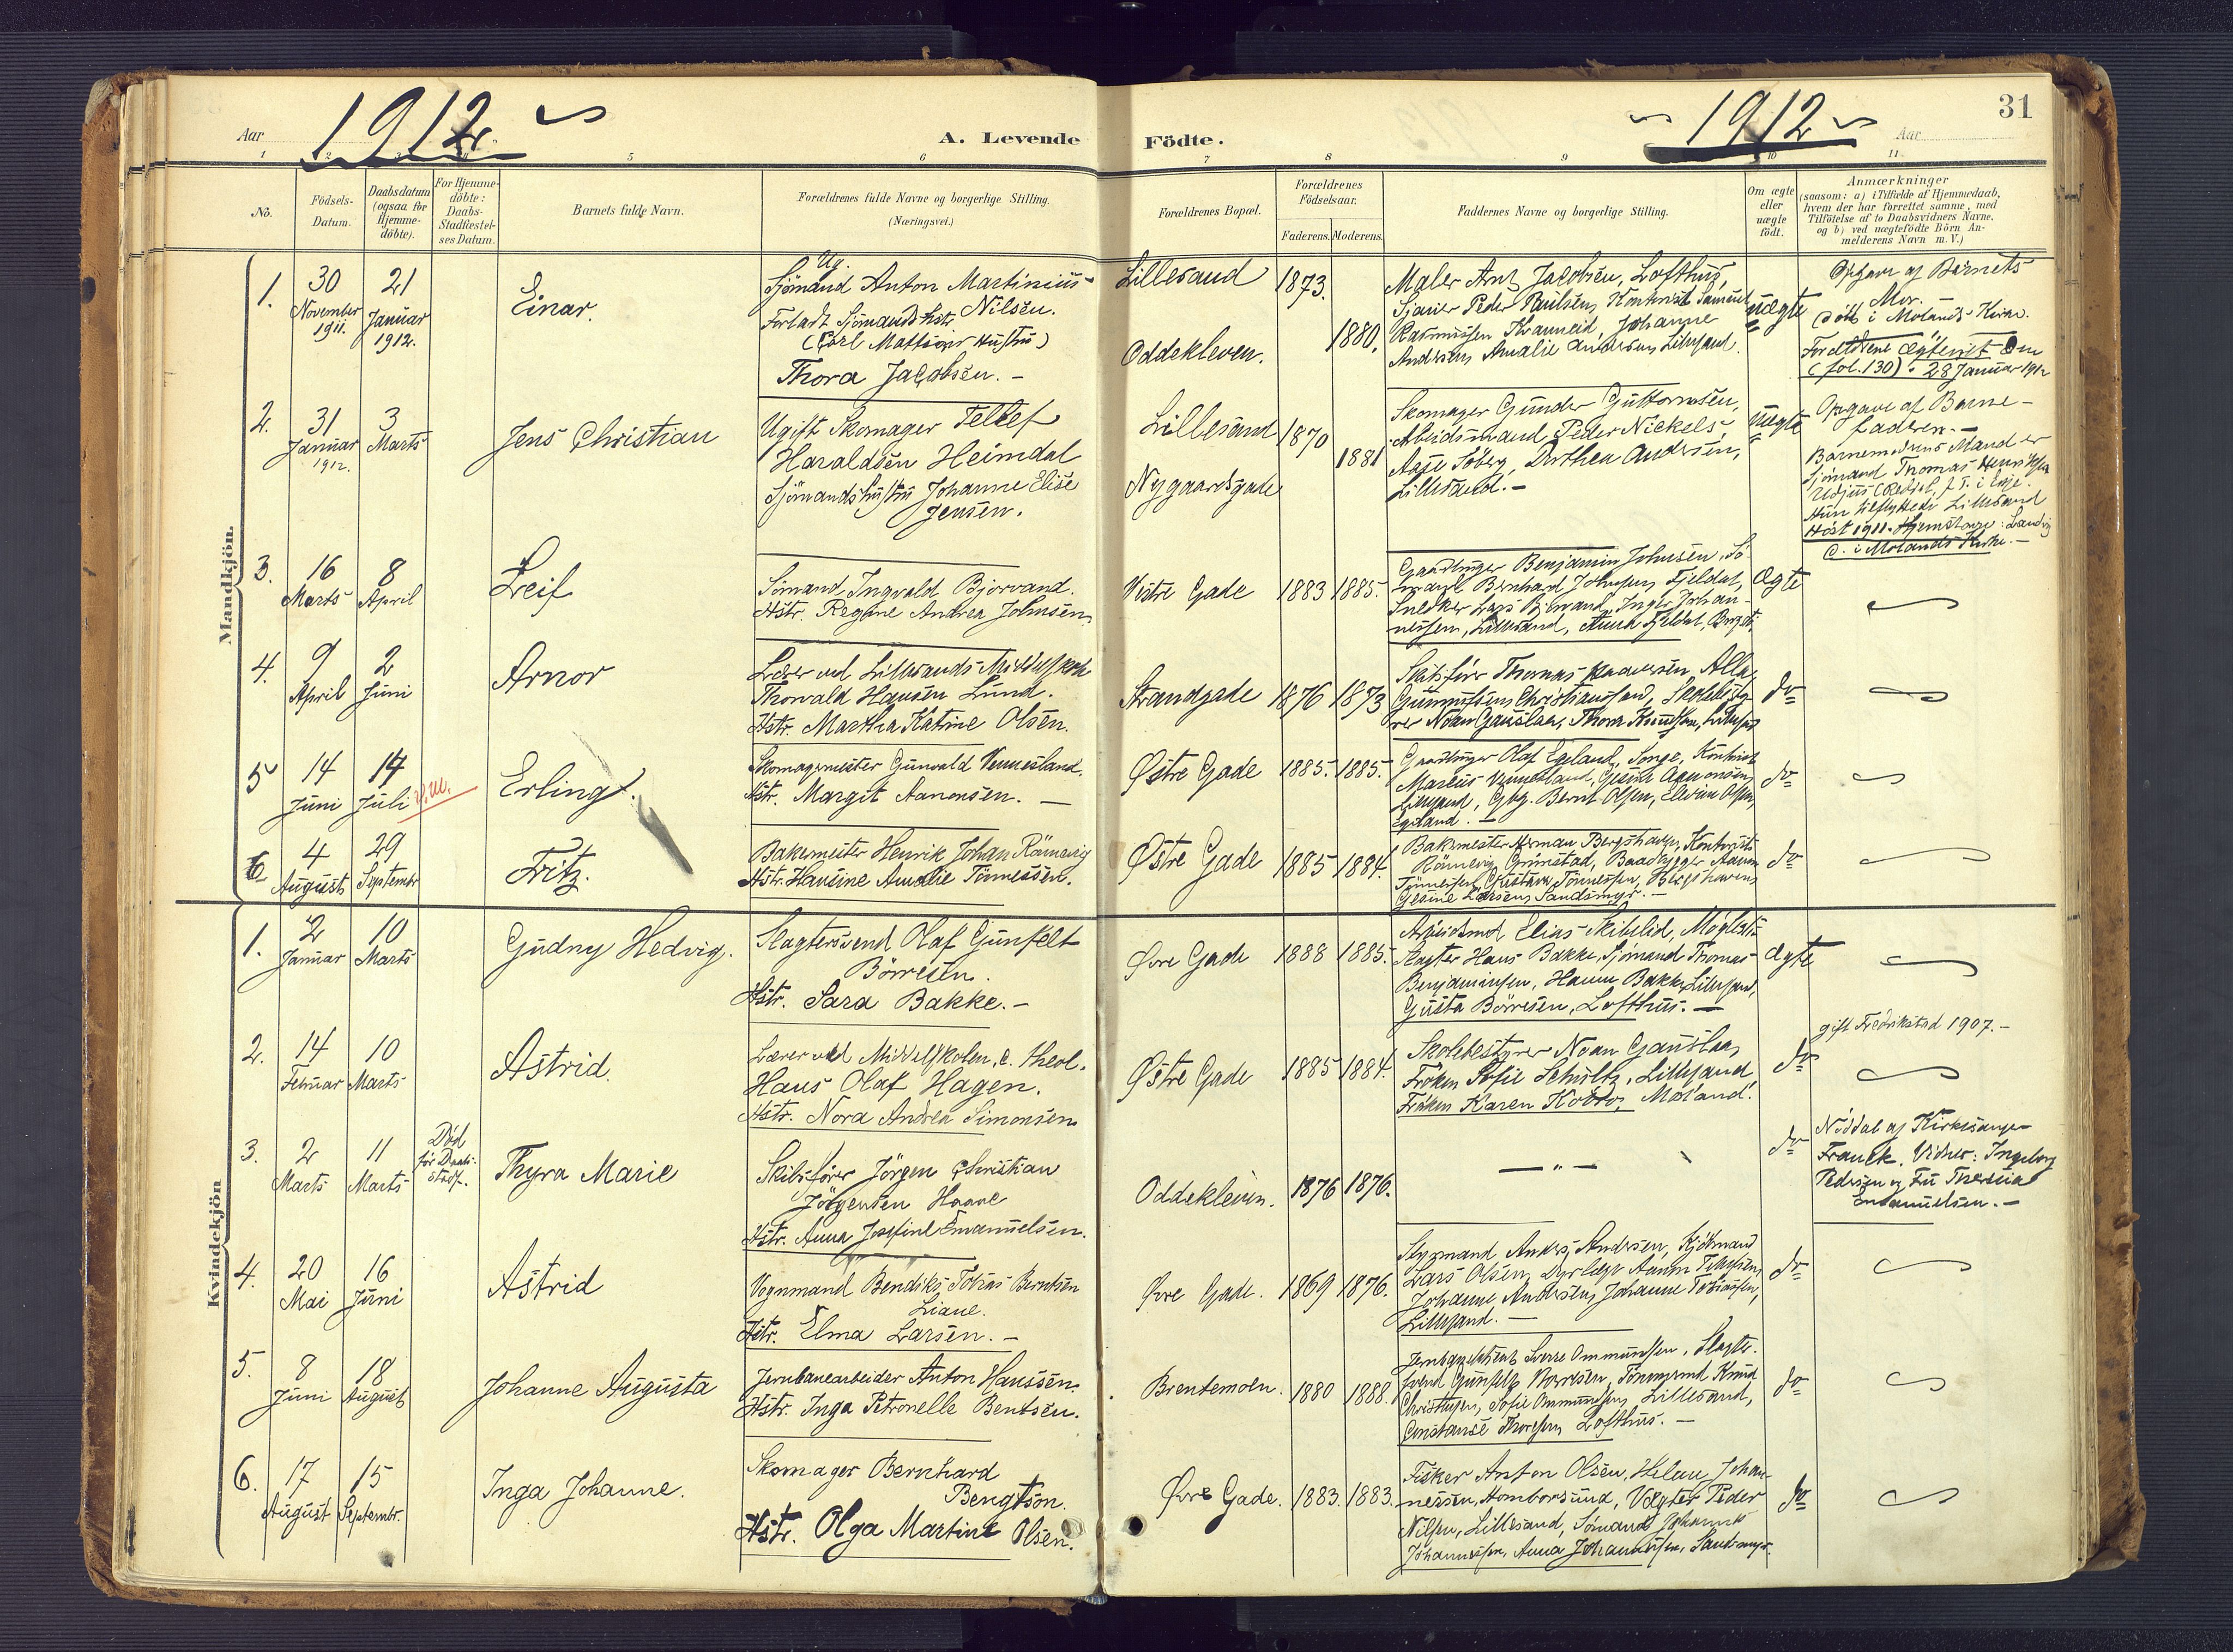 1912
1912
31
Aar
A. Levende
Födte.
Aar
1 2 5 6 7 8 9 10 11
No.
Födsels-
Datum.
Daabsdatum
(ogsaa for
Hjemme-
döbte).
For Hjemme-
döbte:
Daabs-
Stadfæstel-
ses Datum.
Barnets fulde Navn.
Forældrenes fulde Navne og borgerlige Stilling.
(Næringsvei.)
Forældrenes Bopæl.
Forældrenes
Födselsaar.
Faderens.
Moderens.
Faddernes Navne og borgerlige Stilling.
Om ægte
eller
uægte
födt.
Anmærkninger
(saasom: a) i Tilfælde af Hjemmedaab,
hvem der har forrettet samme, med
Tilföielse af to Daabsvidners Navne,
og b) ved uægtefödte Börn An-
melderens Navn m. V.)
Mandkjön.
1.
30
November
1911.
21
Januar
1912.
Einar.
Ug.
Sjömand Anton Martinius
Nilsen.
Forladt Sjömandshstr
Thora Jacobsen. -
Lillesand
Oddekleven.
1873.
1880.
Maler Jacobsen, Lofthus,
Johanne
Andersen, Amalie Andersen, Lillesand.
uægte
Opgave af Barnets
Mor.
Kirke.
Forældrene Ægteviet
(fol. 130). 28 Januar 1912
2.
31
Januar
1912.
3
Marts
Jens Christian
Ugift Skomager Tellef
Haraldsen Heimdal
Sjömandshustru Johanne Elise
Jensen.
Lillesand
Nygaardsgade
1870
1881
Skomager Gunder Guttormsen,
Arbeidsmand Peder Nickels,
Aase Söberg, Dorthea Andersen,
Lillesand. -
uægte
Opgave af Barne-
faderen. -
Barnemoderens Mand er
Sjömand Thomas
Hun tilflyttede Lillesand
Höst 1911. Hjemstavn: Landvig
D. i Molands Kirke. -
3.
16
Marts
8
April
Leif
Sömand Ingvald Bjorvand.
Hstr. Regine Andrea Johnsen.
Vestre Gade
1883
1885.
Gaardbruger Benjamin Johnsen, Sö-
mand Bernhard Johnsen, Fjeldal,
Snedker Lars Bjorvand, Inga Johan-
nessen, Lillesand, Anna Fjeldal,
Ægte
4.
9
April
2
Juni
Arnor
Lærer ved Lillesands Middelskole
Thorvald Hansen Lund.
Hstr. Martha Katrine Olsen.
Strandgade
1876
1873
Skibsförer Thomas
Gunnulfsen, Christianssand, Skolebesty-
rer Noan Gauslaa, Thora Knudsen, Lillesand
do
5
14
Juni
14
Juli
Erling.
Skomagermester Gunvald Vennesland.
Hstr. Margit Aanonsen. -
Østre Gade
1885.
1885.
Gaardbruger Olaf Egeland, Songe, Kontorist
Marius Vennesland, Gesine Aanonsen,
Lillesand, Gbg. Bernt Olsen, Olsen,
Egeland. -
do
6
4
August
29
September
Fritz.
Bakermester Henrik Johan Rönnevig
Hstr. Hansine Amalie Tönnessen.
Østre Gade
1885
1884.
Bakermester Herman Bergshaven, Kontorist
Rönnevig, Grimstad, Baadbygger
Tönnessen, Gustava Tönnessen, Bergshaven,
Gesine Larsen, Sandsmyr. -
do
Kvindekjön
1.
2
Januar
10
Marts
Gudny Hedvig.
Slagtersvend Olaf Gunfelt
Börresen.
Hstr. Sara Bakke. -
Övre Gade
1888
1885.
Arbeidsmd. Elias Skibelid, Möglestu
Slagter Hans Bakke, Sjömand Thomas
Benjaminsen, Hanne Bakke, Lillesand,
Gusta Börresen, Lofthus. -
Ægte
2.
14
Februar
10
Marts
Astrid.
Lærer ved Middelskolen, c. theol.
Hans Olaf Hagen.
Hstr. Nora Andrea Simonsen
Østre Gade
1885
1884.
Skolebestyrer Noan Gauslaa,
Fröken Sofie Schultz, Lillesand,
Fröken Karen Moland.
do
gift Fredrikstad 1907. -
3.
2
Marts
11
Marts
Död
för Daabs-
stadf.
Thyra Marie
Skibsförer Jörgen Christian
Jörgensen Haave
Hstr. Anna Josefine Emanuelsen.
Oddekleven.
1876
1876.
- " -
do
Nöddöbt af Kirkesanger
Franck. Vidner: Ingeborg
Pedersen og Fru Theresia
Emanuelsen. -
4.
20
Mai
16
Juni
Astrid
Vognmand Bendiks Tobias Berntsen
Liane.
Hstr. Elma Larsen. -
Övre Gade.
1869
1876.
Styrmand Anders Andersen, Kjöbmand
Lars Olsen, Dyrlæge
Johanne Andersen, Johanne Tobiassen,
Lillesand. -
do
5.
8
Juni
18
August
Johanne Augusta
Jernbanearbeider Anton Hanssen.
Hstr. Inga Petronelle Bentsen.
Brentemoen.
1880
1888.
Sverre Ommundsen, Slagter-
svend Gunfelt Börresen, Tömmermd. Knud
Christensen, Sofie Ommundsen, Lillesand,
Constanse Thorsen, Lofthus. -
do
6.
17
August
15
Septembr.
Inga Johanne.
Skomager Bernhard
Bengtson.
Hstr. Olga Martine Olsen.
Övre Gade.
1883.
1883.
Fisker Anton Olsen, Helene Johan-
nessen, Homborsund, Vægter Peder
Nilsen, Lillesand, Sömand Johannes
Johannessen, Anna Johannessen,
do